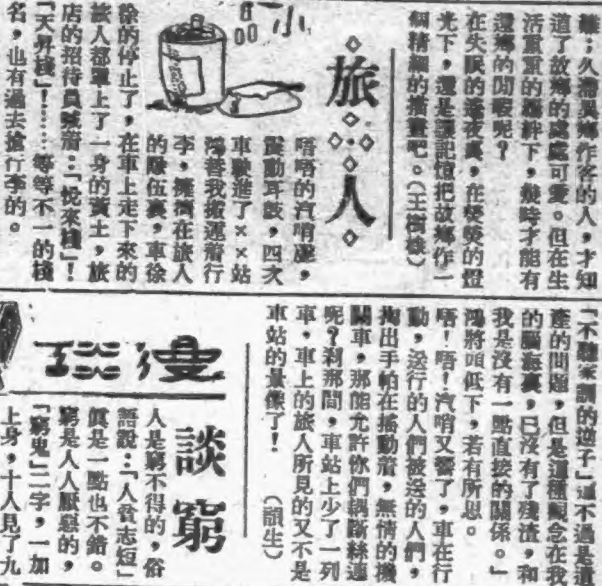 離；久滯異鄉作客的人，才知
道了故鄉的處處可愛。但在生
活重重的羈絆下，幾時才能有
還鄉的閒暇呢？
在失眠的深夜裏，在熒熒的燈
光下，還是讓記憶把故鄉作一
個精細的描畫吧。（王樹雄）
小品
旅人
唔唔的汽哨聲，
震動耳鼓，四次
車駛進了××站
鴻替我搬運着行
李，擁擠在旅人
的隊伍裏，車徐
徐的停止了，在車上走下來的
旅人都罩上了一身的黃土，旅
店的招待員喊着：「悅來棧」！
「天昇棧」！……等等不一的棧
名，也有過去搶行李的。
「不聽家訓的逆子」這不過是遺
產的問題，但是這種觀念在我
的腦海裏，已沒有了殘渣，和
我是沒有一點直接的關係。」
鴻將頭低下，若有所思。
唔！唔！汽哨又響了，車在行
動，送行的人們被送的人們，
掏出手帕在搖動着，無情的機
關車，那能允許你們藕斷絲連
呢？剎那間，車站上少了一列
車，車上的旅人所見的又不是
車站的景像了！　（韻生）
談窮
人是窮不得的，俗
語說：「人貧志短」
真是一點也不錯。
窮是人人厭惡的，
「窮鬼」二字，一加
上身，十人見了九